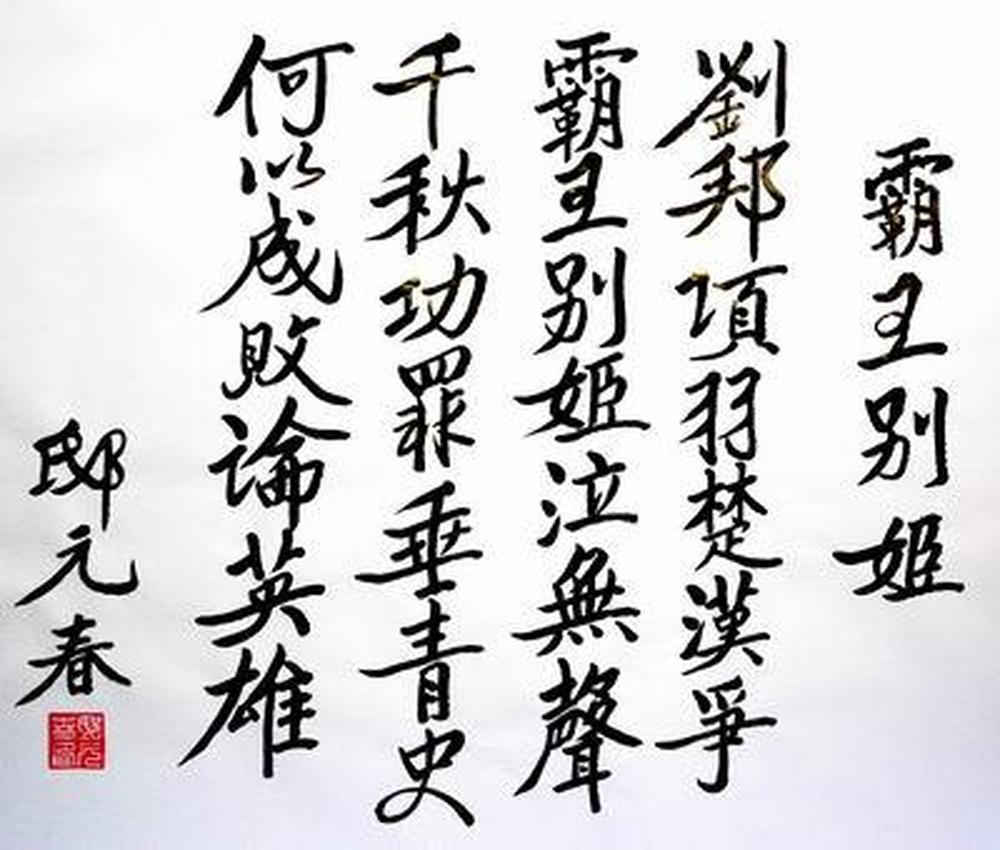 霸王别姬
劉邦項羽楚漢爭
霸王别姬泣無聲
千秋功罪垂青史
何以成敗論英雄
邸元春